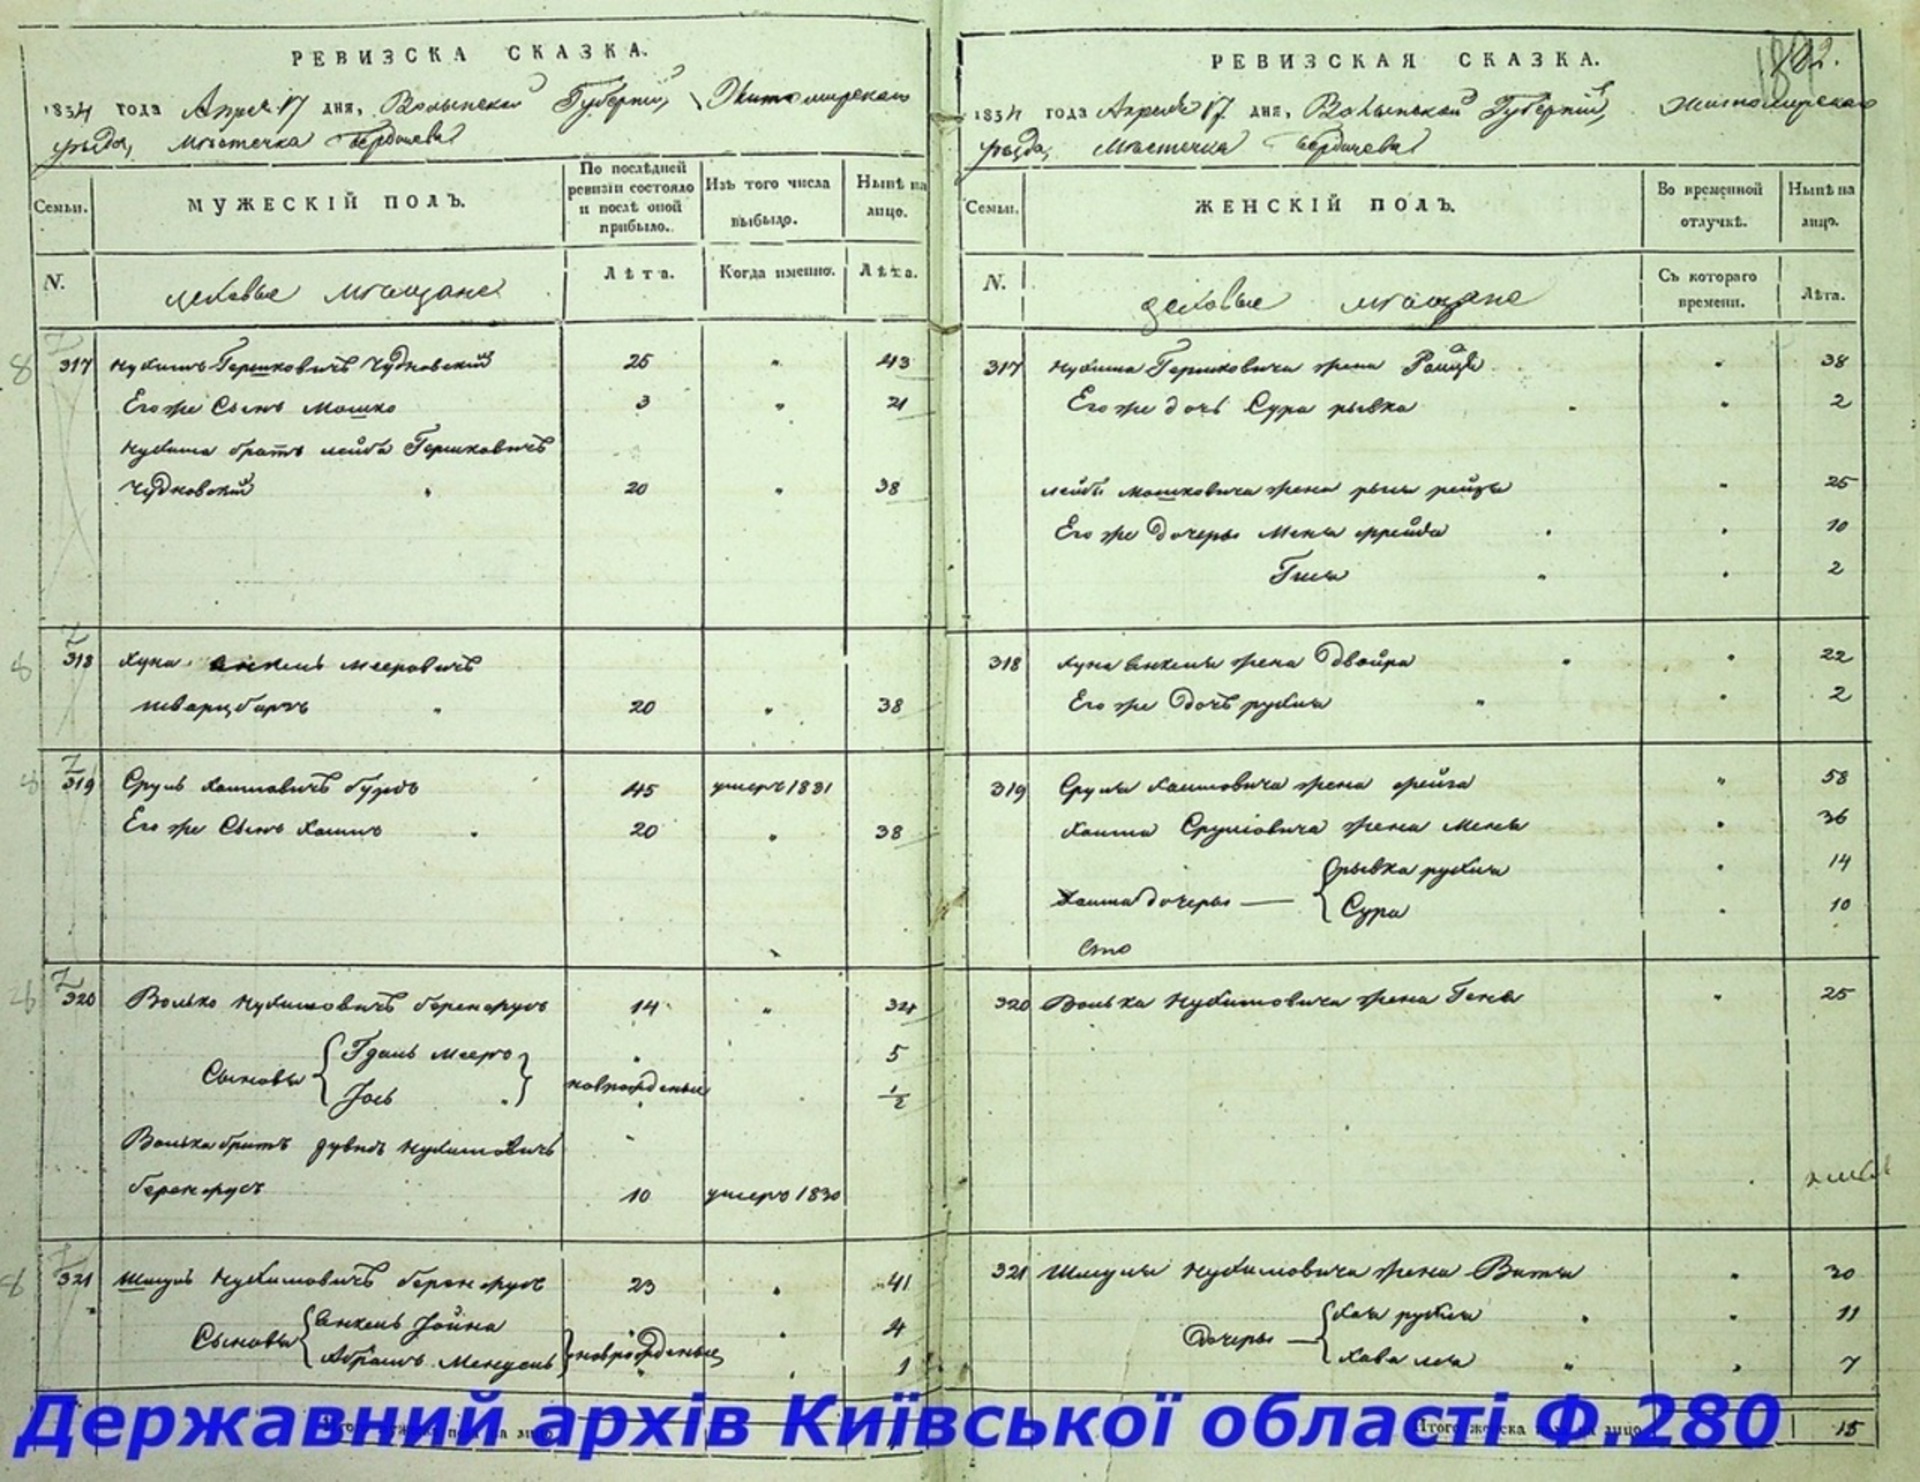 РЕВИЗСКА СКАЗКА.
1834 года Апреля 17 дня, Волынской Губернии, Житомирского
уезда, Местечка Бердичева
Семьи.
МУЖЕСКІЙ ПОЛЪ.
По послѣдней ревизіи состояло и послѣ оной прибыло.
Изъ того числа выбыло.
Нынѣ на лицо.
N.
цеховые мещане
Лѣта.
Когда именно.
Лѣта.
317 Нухимъ Гершковичъ Чудновскій 25 " 43
Его же Сынъ Мошко 3 " 21
Нухима братъ лейба Гершковичъ
Чудновскій " 20 " 38
318 Хуна Анкель Мееровичъ
шварцбурхъ " 20 " 38
319 Сруль Хаимовичъ 45 умеръ 1831
Его же Сынъ Хаимъ 20 " 38
320 Волько Нухимовичъ 14 " 32
Сыновья Гдаль Мееръ " 5
Іось " новорожденые 1/2
Волька братъ дувидъ Нухимовичъ
10 умеръ 1830
321 Шмуль Нухимовичъ 23 " 41
Сыновья Анкель Іойна " " 4
Абрамъ Мендель новорожденые " 1
РЕВИЗСКАЯ СКАЗКА.
1834 года Апреля 17 дня, Волынской Губернии, Житомирского
уезда, Местечка Бердичева
Семьи.
ЖЕНСКІЙ ПОЛЪ.
Во временной отлучкѣ.
Нынѣ на лицо.
N.
цеховые мещане
Съ котораго времени.
Лѣта.
317 Нухима Гершковича жена " 38
Его же дочь Сура рывка " " 2
лейбы Мошковича жена рейзы " 25
Его же дочеры Меня фрейда " " 10
Гися " " 2
318 Хуна Анкеля жена Двойра " " 22
Его же дочь рухля " " 2
319 Сруля Хаимовича жена фейга " 58
Хаима Срулиовича жена Меня " 36
рывка рухля " 14
Хаима дочеры — Сура " 10
320 Волька Нухимовича жена Геня " 25
321 Шмуля Нухимовича жена " 30
Дочеры — рухля " " 11
хава лея " " 7
Итого женска пола на лицо 15
Державний архів Київської області Ф.280